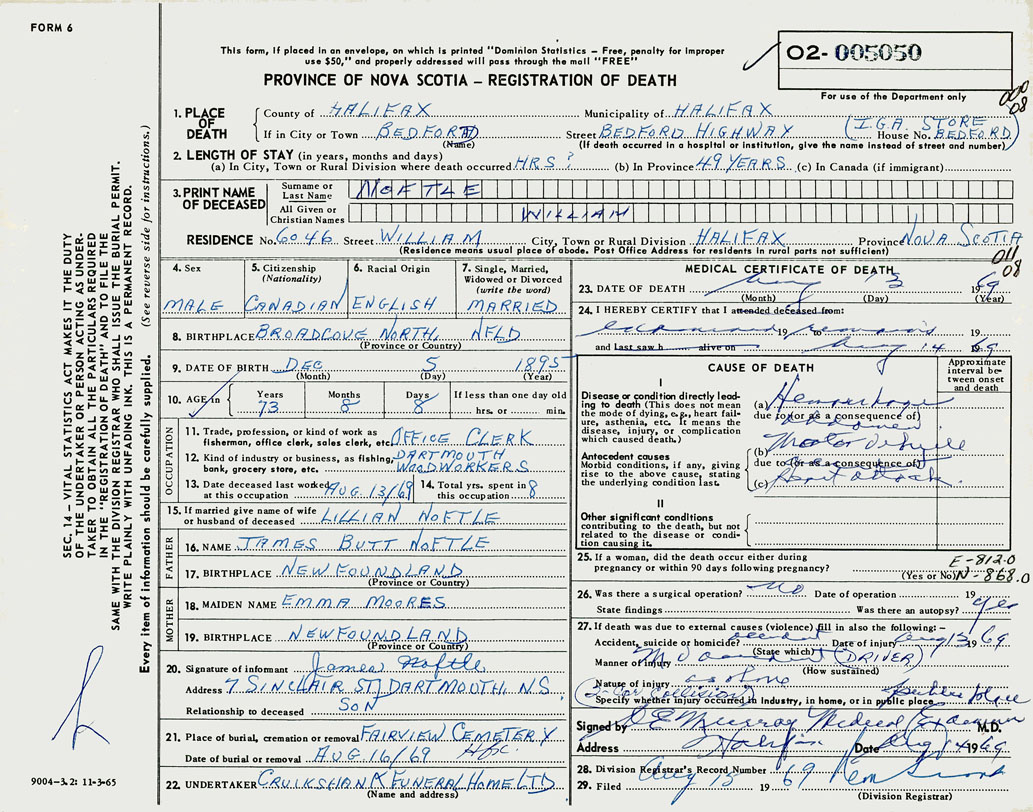 FORM 6
This form, if placed in an envelope, on which is printed "Dominion Statistics – Free, penalty for improper
use $50," and properly addressed will pass through the mail "FREE"
PROVINCE OF NOVA SCOTIA – REGISTRATION OF DEATH
02- 005050
For use of the Department only
000
08
1. PLACE OF DEATH
County of HALIFAX Municipality of HALIFAX
If in City or Town BEDFORD Street BEDFORD HIGHWAY House No. (I.G.A. STORE BEDFORD)
(Name) (If death occurred in a hospital or institution, give the name instead of street and number)
2. LENGTH OF STAY (in years, months and days)
(a) In City, Town or Rural Division where death occurred HRS ? (b) In Province 49 YEARS (c) In Canada (if immigrant)
3. PRINT NAME OF DECEASED
Surname or Last Name NOFTLE
All Given or Christian Names WILLIAM
RESIDENCE No. 6046 Street WILLIAM City, Town or Rural Division HALIFAX Province NOVA SCOTIA
(Residence means usual place of abode. Post Office Address for residents in rural parts not sufficient)
011
08
4. Sex
MALE
5. Citizenship (Nationality)
CANADIAN
6. Racial Origin
ENGLISH
7. Single, Married, Widowed or Divorced (write the word)
MARRIED
8. BIRTHPLACE BROADCOVE NORTH, NFLD
(Province or Country)
9. DATE OF BIRTH DEC 5 1895
(Month) (Day) (Year)
10. AGE in Years 73 Months 8 Days 8 If less than one day old hrs. or min.
OCCUPATION
11. Trade, profession, or kind of work as fisherman, office clerk, sales clerk, etc. OFFICE CLERK
12. Kind of industry or business, as fishing, bank, grocery store, etc. DARTMOUTH WOODWORKERS
13. Date deceased last worked at this occupation AUG. 13/69 14. Total yrs. spent in this occupation 8
15. If married give name of wife or husband of deceased LILLIAN NOFTLE
FATHER
16. NAME JAMES BUTT NOFTLE
17. BIRTHPLACE NEWFOUNDLAND
(Province or Country)
MOTHER
18. MAIDEN NAME EMMA MOORES
19. BIRTHPLACE NEWFOUNDLAND
(Province or Country)
20. Signature of informant James Noftle
Address 7 SINCLAIR ST, DARTMOUTH, N.S.
Relationship to deceased SON
21. Place of burial, cremation or removal FAIRVIEW CEMETERY
Date of burial or removal AUG. 16/69
22. UNDERTAKER CRUIKSHANK FUNERAL HOME LTD
(Name and address)
MEDICAL CERTIFICATE OF DEATH
23. DATE OF DEATH Aug 13 1969
(Month) (Day) (Year)
24. I HEREBY CERTIFY that I attended deceased from:
examined 19 to remains
and last saw h alive on Aug 14 1969
CAUSE OF DEATH
Approximate interval between onset and death
I
Disease or condition directly leading to death (This does not mean the mode of dying, e.g., heart failure, asthenia, etc. It means the disease, injury, or complication which caused death.)
(a) Hemorrhage
due to (or as a consequence of)
Antecedent causes
Morbid conditions, if any, giving rise to the above cause, stating the underlying condition last.
(b) Motor Vehicle
due to (or as a consequence of)
(c)
II
Other significant conditions contributing to the death, but not related to the disease or condition causing it.
25. If a woman, did the death occur either during pregnancy or within 90 days following pregnancy?
(Yes or No)
E-812.0
N-868.0
26. Was there a surgical operation? No Date of operation 19
State findings Was there an autopsy? yes
27. If death was due to external causes (violence) fill in also the following: –
Accident, suicide or homicide? accident Date of injury Aug 13 1969
(State which)
Manner of injury M V accident (DRIVER)
(How sustained)
Nature of injury as above
(2-car collision)
Specify whether injury occurred in Industry, in home, or in public place. public place
Signed by Murray Medical Examiner M.D.
Address Halifax Date Aug 14 1969
28. Division Registrar's Record Number
29. Filed Aug 15 1969
(Division Registrar)
SEC. 14 – VITAL STATISTICS ACT MAKES IT THE DUTY
OF THE UNDERTAKER OR PERSON ACTING AS UNDER-
TAKER TO OBTAIN ALL THE PARTICULARS REQUIRED
IN THE "REGISTRATION OF DEATH" AND TO FILE THE
SAME WITH THE DIVISION REGISTRAR WHO SHALL ISSUE THE BURIAL PERMIT.
WRITE PLAINLY WITH UNFADING INK. THIS IS A PERMANENT RECORD.
Every item of information should be carefully supplied. (See reverse side for instructions.)
9004-3.2: 11-3-65